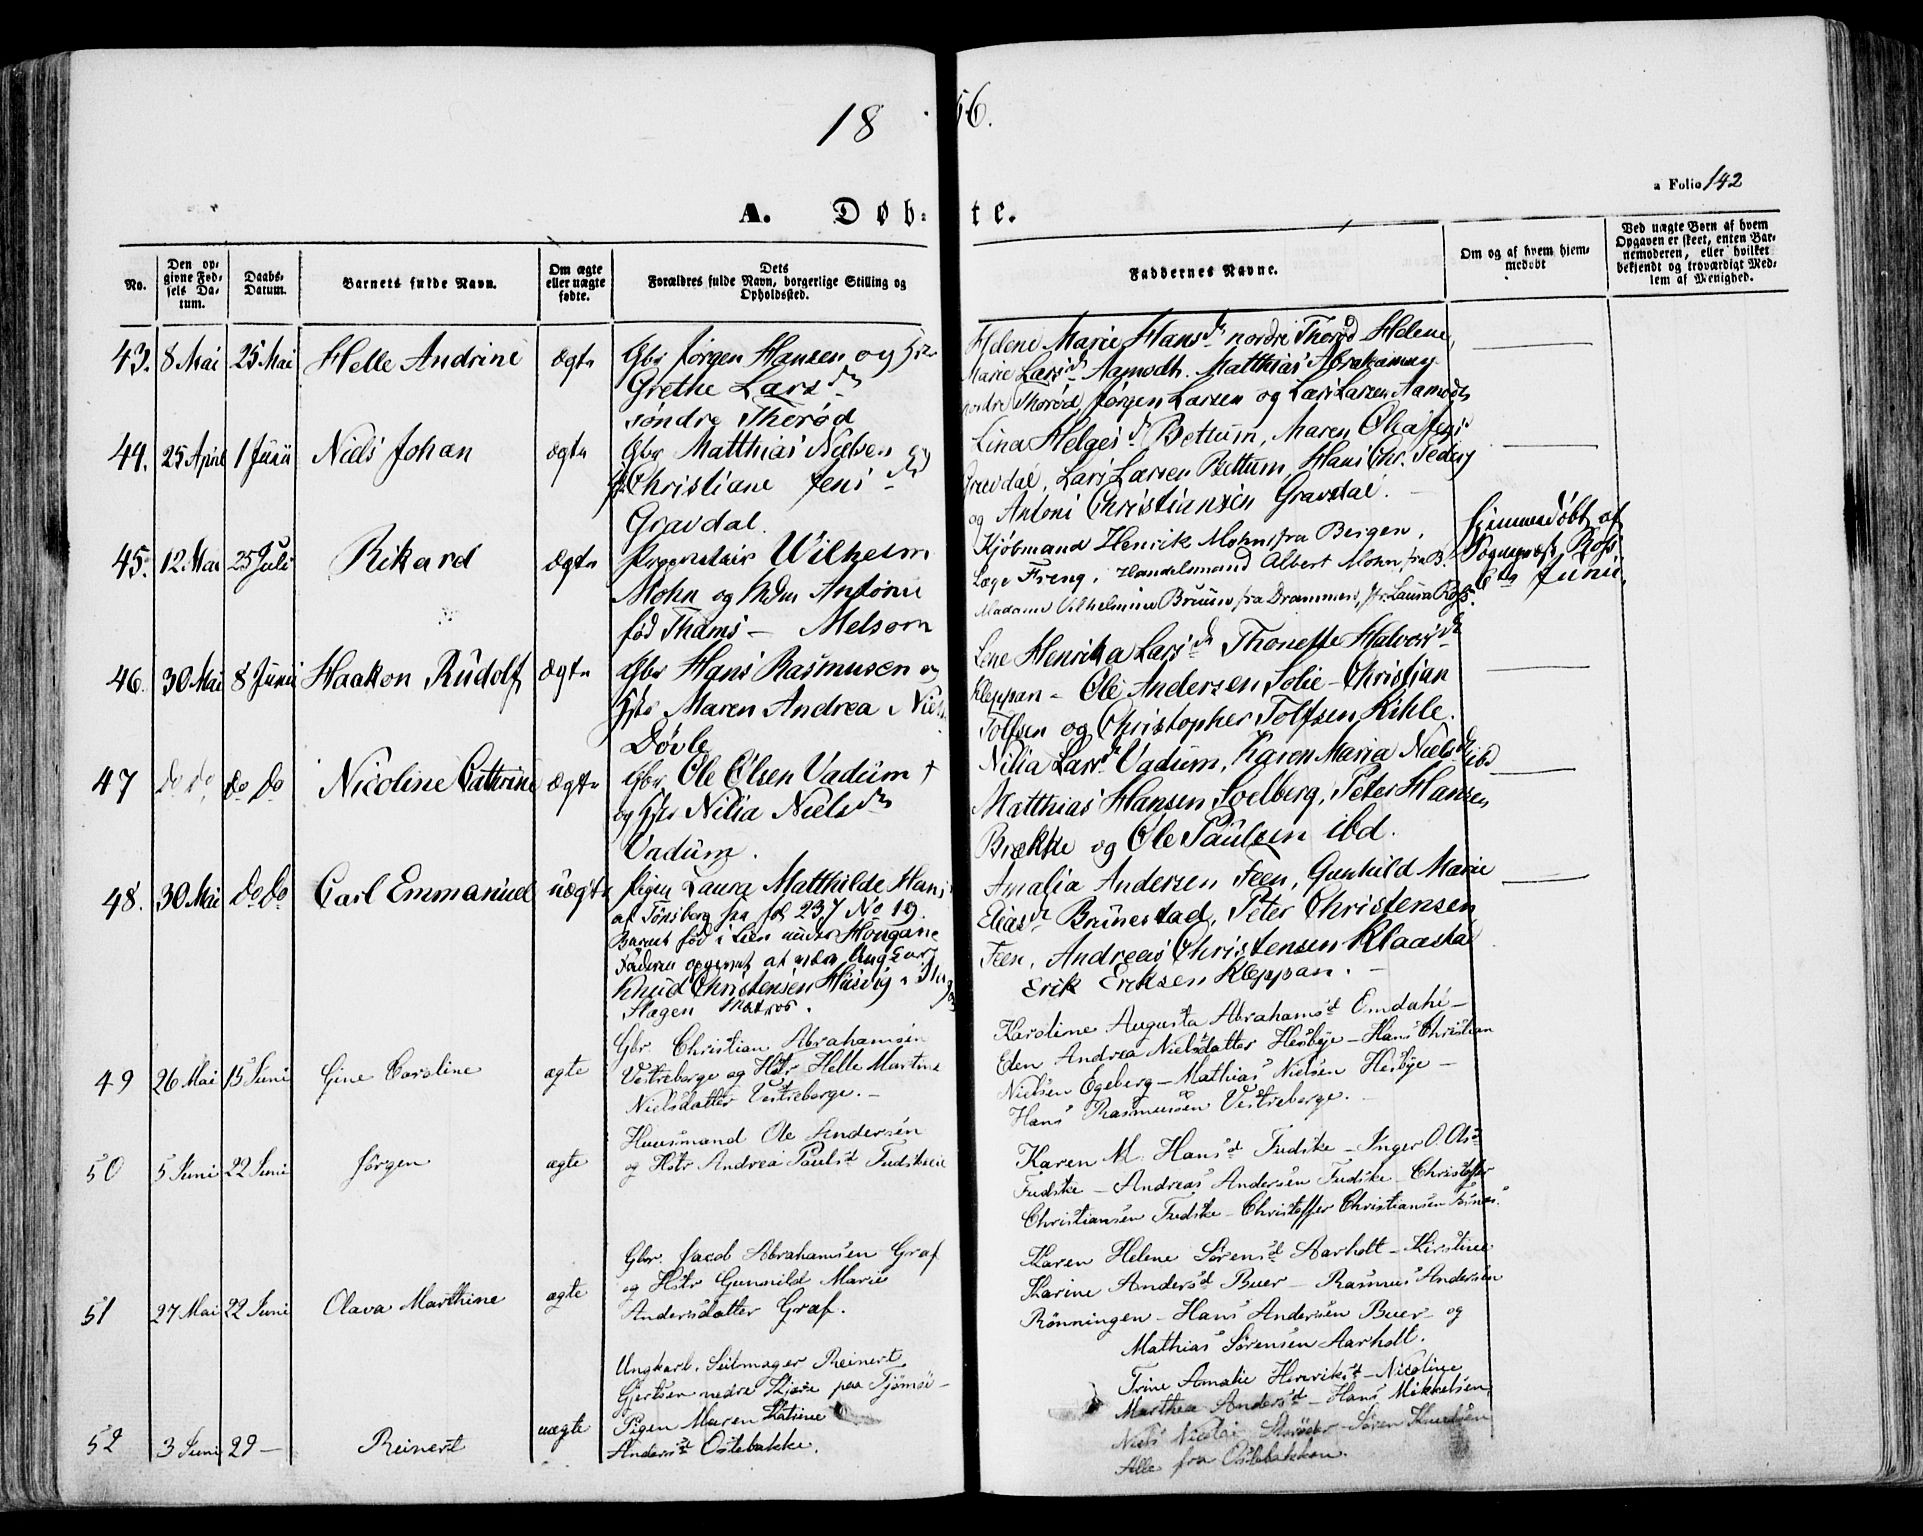 18 56.
a Folio 142
A. Døb= te.
No.
Den op=
givne Fød=
sels Da=
tum.
Daabs=
Datum.
Barnets fulde Navn.
Om ægte
eller uægte
fødte.
Dets
Forældres fulde Navn, borgerlige Stilling og
Opholdssted.
Faddernes Navne.
Om og af hvem hjem=
medøbt
Ved uægte Børn af hvem
Opgaven er skeet, enten Bar=
nemoderen, eller hvilket
bekjendt og troværdigt Med=
lem af Menighed.
43. 8 Mai 25 Mai Helle Andrine ægte
Gbr Jørgen Hansen og
Grethe Larsdr
søndre Thorød
Helene Marie Hansdr nordre Thorød Helene
Marie Larsdr Aamodt. Matthias Abrahamsen
nordre Thorød, Jørgen Larsen og Lars Larsen Aamodt
44. 25 April 1 Juni Niels Johan ægte
Gbr Matthias Nielsen og
Christiane Jensdr
Gravdal.
Lina Helgesdr Bettum, Maren Olea Jensdr
Gravdal, Lars Larsen Bettum, Hans Chr. Peders
og Antoni Christiansen Gravdal.
45. 12 Mai 25 Juli Rikard ægte
Proprietair Wilhelm
Mohn og Mdm Antonie
fød Thams - Melsom
Kjøbmand Henrik Mohn fra Bergen,
Læge Freng, Handelsmand Albert Mohn, fra B.
Madame Vilhelmine Bruun fra Drammen, Fr. Laura
hjemmedøbt af
Sognepræst
6te Juni.
46. 30 Mai 8 Juni Haakon Rudolf ægte
Gbr Hans Rasmusen og
Hstr Maren Andrea Niels
Døvle
Lene Henrika Larsdr Thonette Halvorsdr
Kleppan - Ole Andersen Solie - Christian
Tolfsen og Christopher Tolfsen Kihle.
47 do do do do Nicoline Cathrine ægte
Gbr Ole Olsen Vadum †
og Hstr Nilia Nielsdr
Vadum.
Nilia Larsdr Vadum, Karen Maria Nielsdr ibd
Matthias Hansen Solberg, Peter Hansen
Brække og Ole Paulsen ibd.
48. 30 Mai do do Carl Emmanuel uægte
Pigen Laura Matthilde Hans
af Tønsberg fra fol 237 No 19.
Barnet fød i Lien under Hougane
Faderen opgivet at være Ungkarl
Knud Christensen Husvig i
Slagen Matros.
Amalia Andersen Feen, Gunhild Marie
Eliasdr Brunestad, Peter Christensen
Feen, Andreas Christensen Klaastad
Erik Eriksen Kleppan. -
49 26 Mai 15 Juni Gine Caroline ægte
Gbr. Christian Abrahamsen
Vestreberge og Hstr Helle Martine
Nielsdatter Vestreberge. -
Karoline Augusta Abrahamsd Omdahl -
Eden Andrea Nielsdatter Hesbye - Hans Christian
Nielsen Egeberg - Mathias Nielsen Hesbye -
Hans Rasmussen Vestreberge. -
50 5 Juni 22 Juni Jørgen ægte
Huusmand Ole Andersen
og Hstr Andrea Paulsd
Karen M. Hansd Fudske - Inger O. Olsd
Fudske - Andreas Andersen Fudske - Christoffer
Christiansen Fudske - Christoffer Christiansen
51 27 Mai 22 Juni Olava Marthine ægte
Gbr. Jacob Abrahamsen Graf
og Hstr Gunnild Marie
Andersdatter Graf.
Karen Helene Sørensd Aarholt - Kirstine
Karine Andersd Buer - Rasmus Andersen
Rønningen - Hans Andersen Buer - og
Mathias Sørensen Aarholt.
52 3 Juni 29 - Reinert uægte
Ungkarl. Seilmager Reinert
Gjertsen nedre paa Tjømø -
Pigen Maren Katrine
Andersd Ostebakke.
Trine Amalie Henriksd - Nicoline
Marthea Andersd - Hans Mikkelsen,
Niels Nicolai - Søren Knudsen
Alle fra Ostebakken.